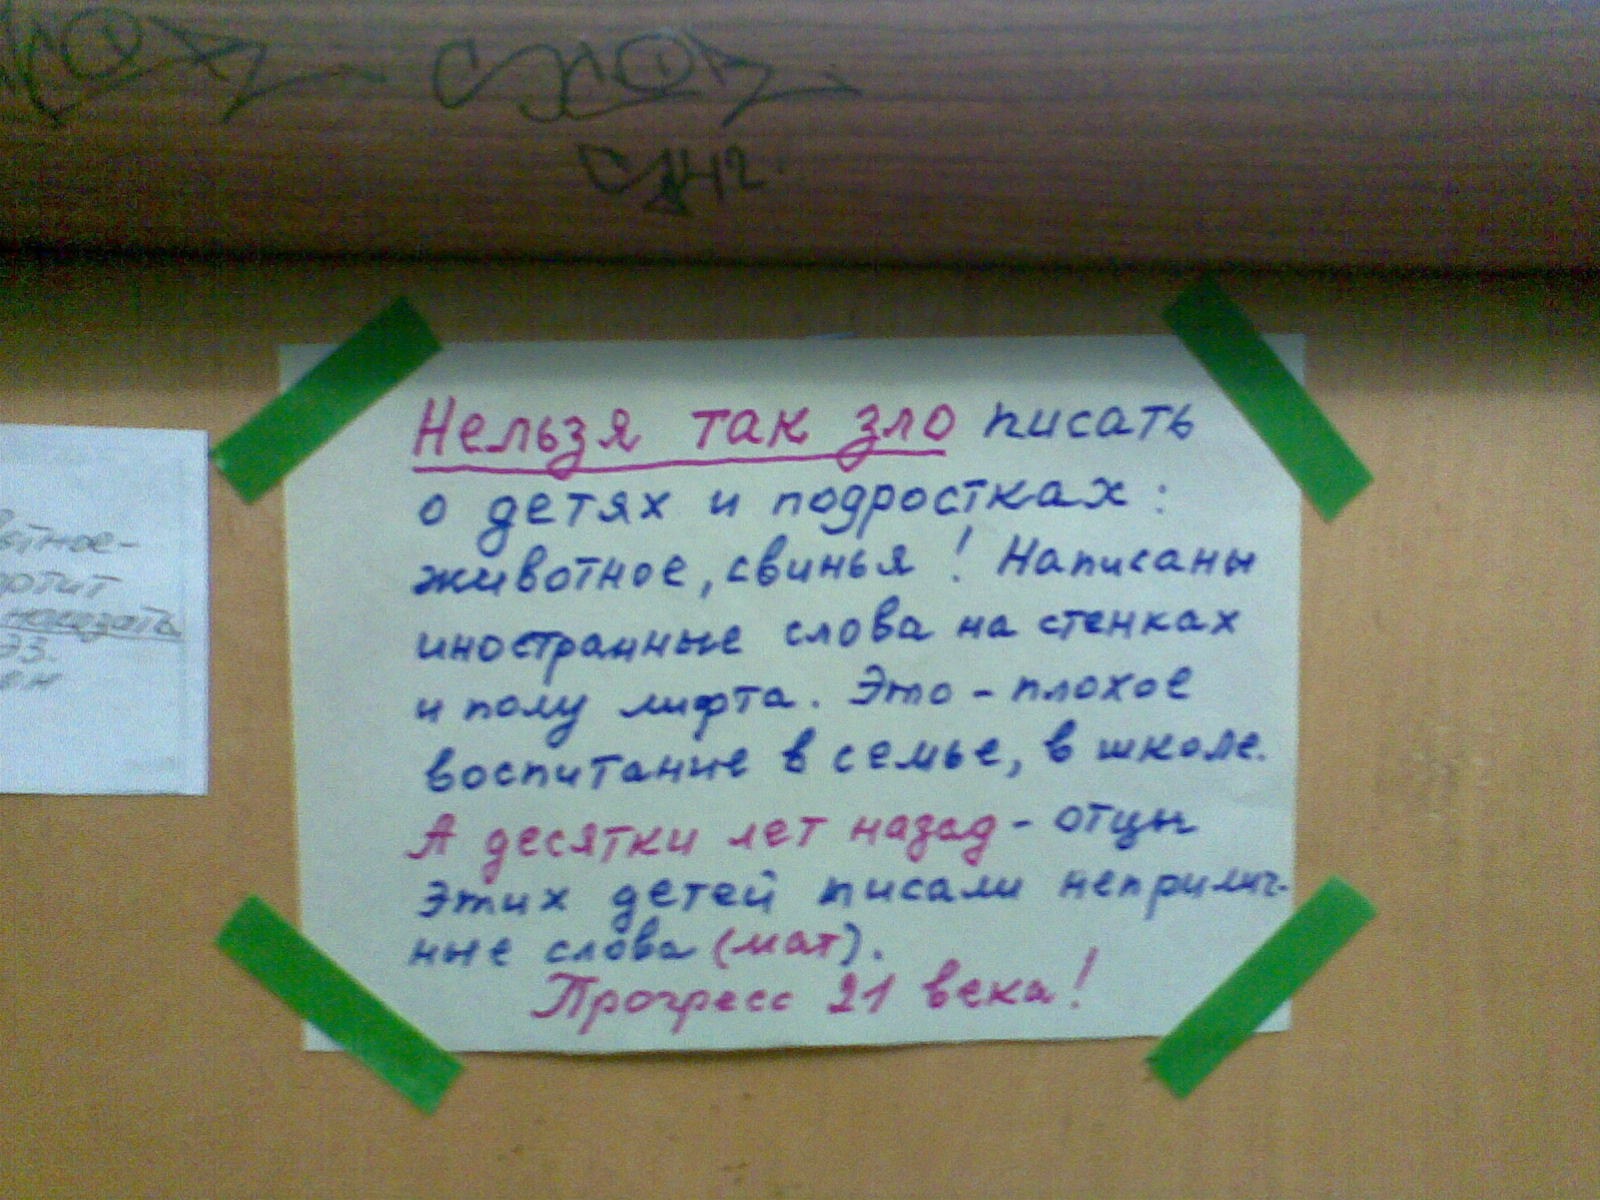 Нельзя так зло писать
о детях и подростках:
животное, свинья! Написаны
иностранные слова на стенках
и полу лифта. Это - плохое
воспитание в семье, в школе.
А десятки лет назад - отцы
этих детей писали неприлич-
ные слова (мат).
Прогресс 21 века!
наказать